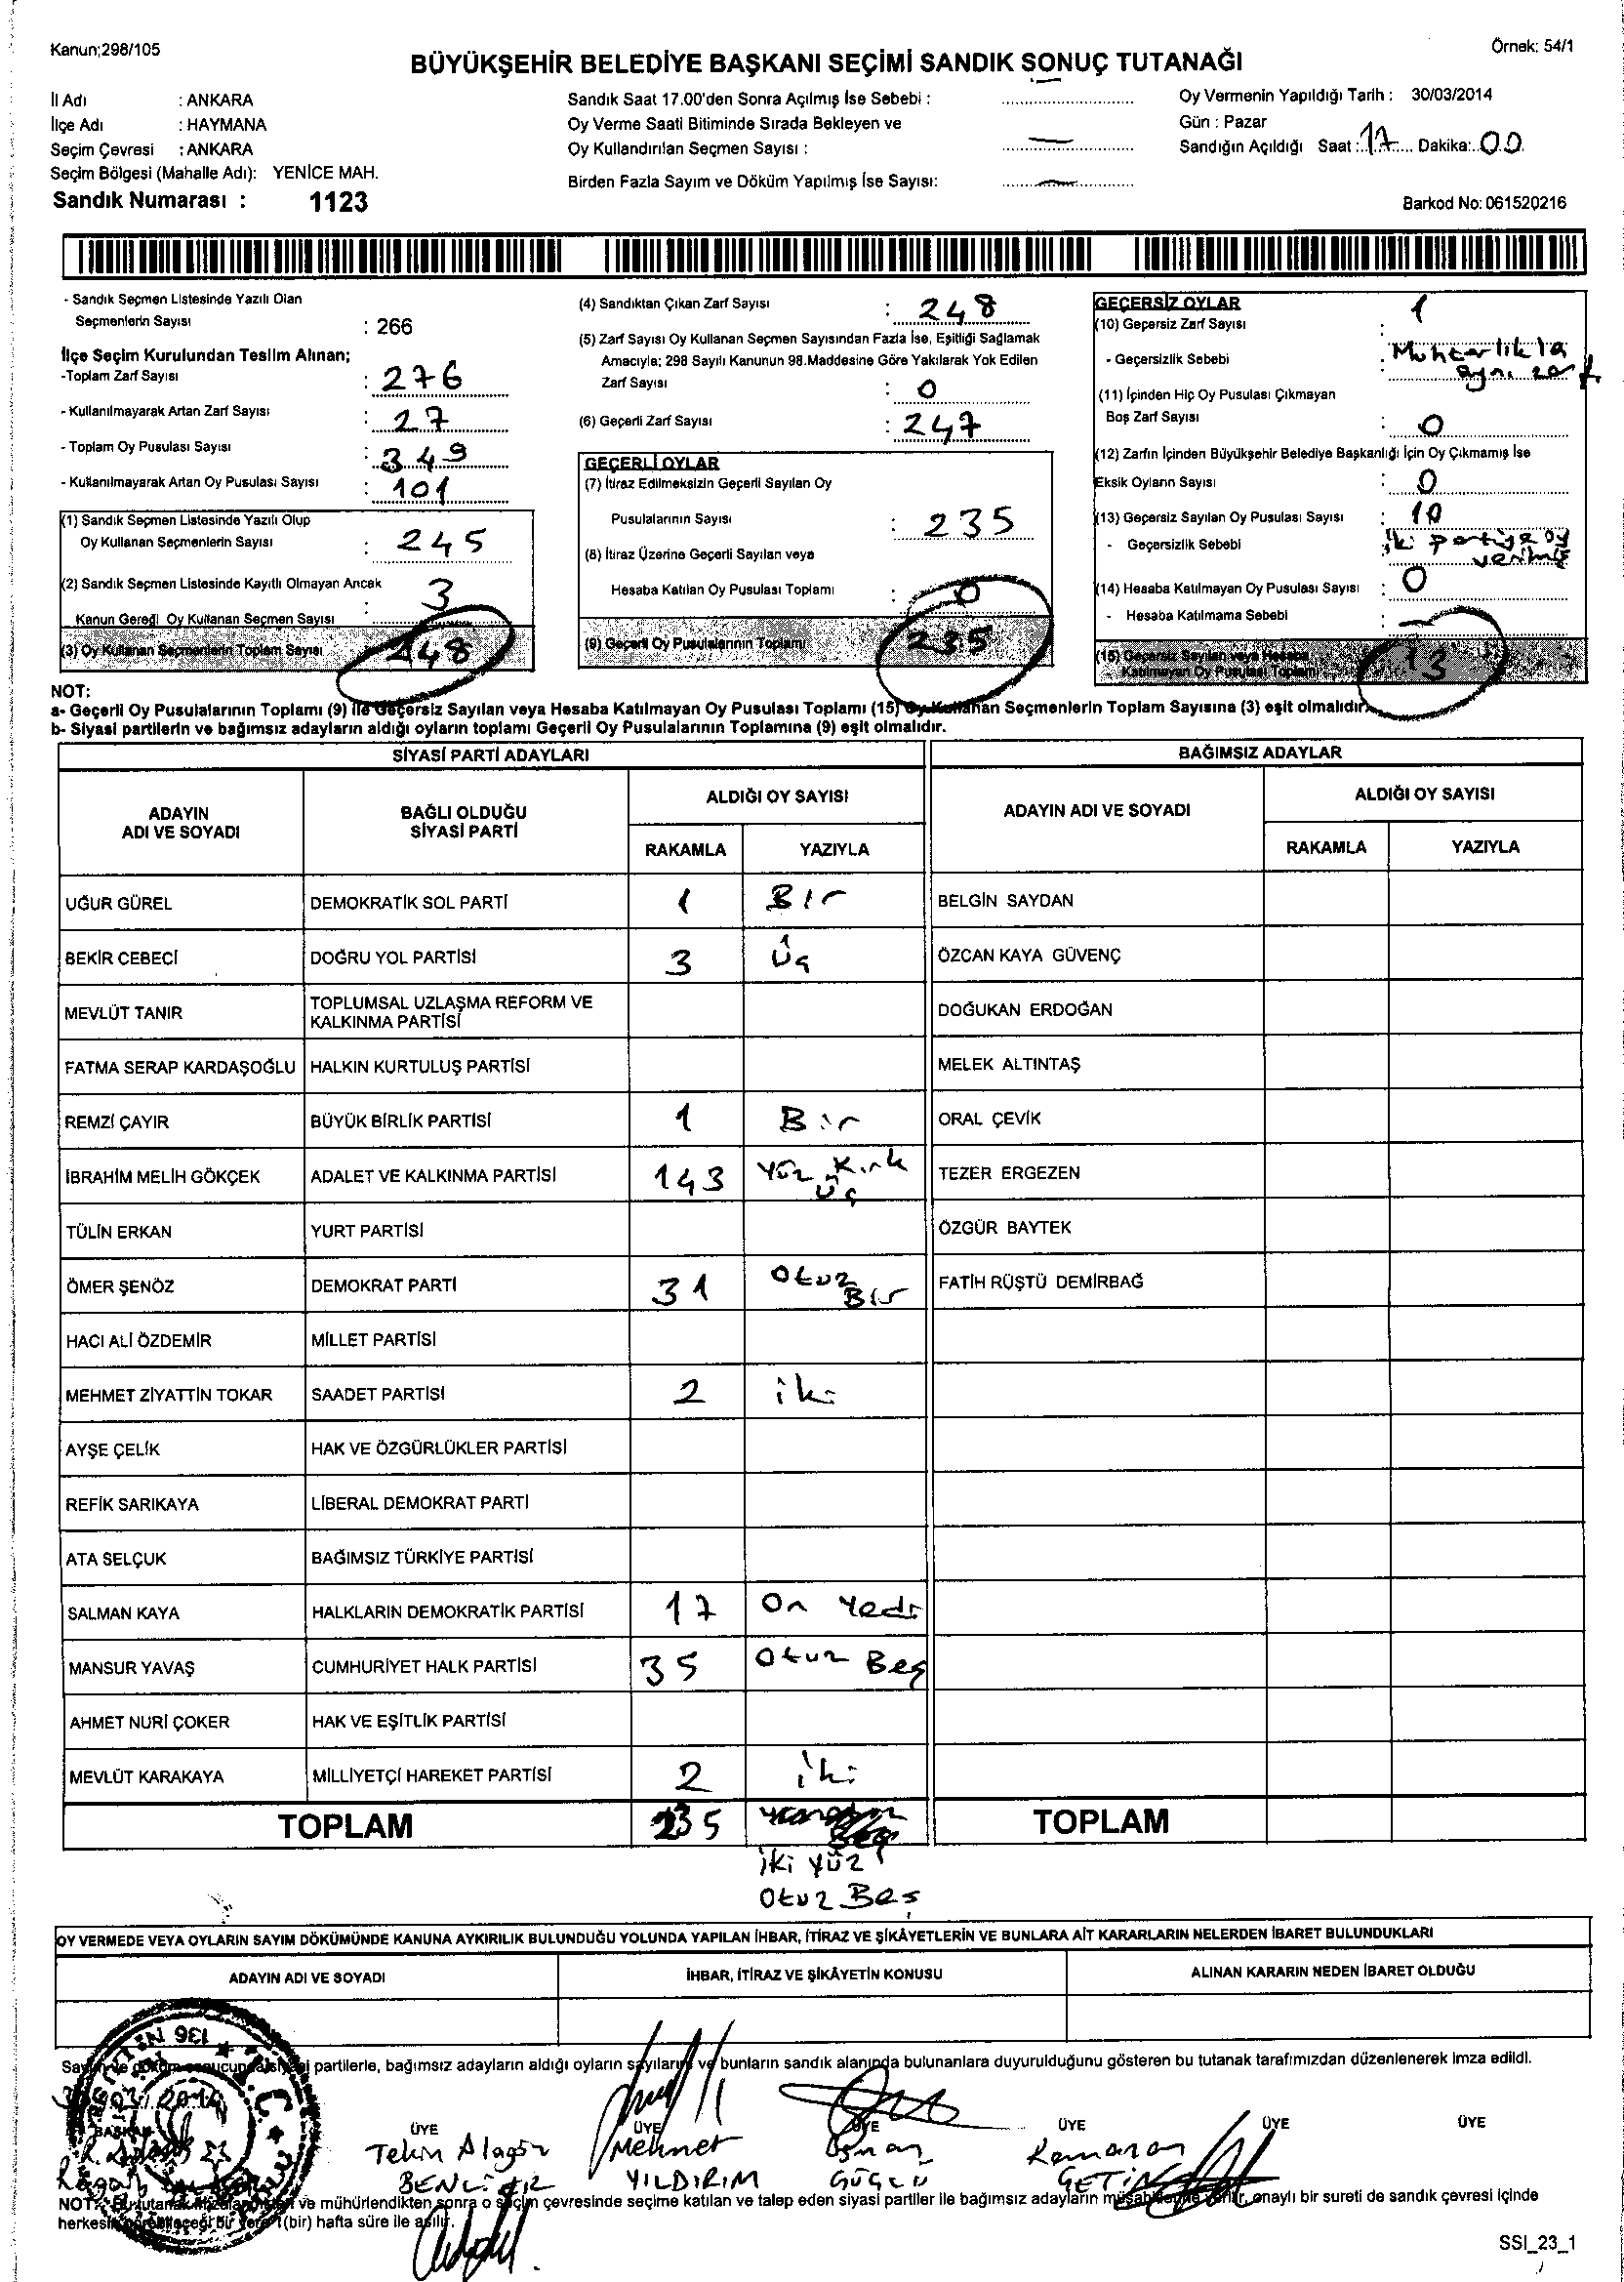 Kanun;298/105
Örnek: 54/1
BÜYÜKŞEHİR BELEDİYE BAŞKANI SEÇİMİ SANDIK SONUÇ TUTANAĞI
İl Adı : ANKARA
İlçe Adı : HAYMANA
Seçim Çevresi : ANKARA
Seçim Bölgesi (Mahalle Adı): YENİCE MAH.
Sandık Numarası : 1123
Sandık Saat 17.00'den Sonra Açılmış İse Sebebi :
Oy Verme Saati Bitiminde Sırada Bekleyen ve
Oy Kullandırılan Seçmen Sayısı :
Birden Fazla Sayım ve Döküm Yapılmış İse Sayısı:
Oy Vermenin Yapıldığı Tarih : 30/03/2014
Gün : Pazar
Sandığın Açıldığı Saat : 17 Dakika: 00
Barkod No: 061520216
- Sandık Seçmen Listesinde Yazılı Olan
Seçmenlerin Sayısı : 266
İlçe Seçim Kurulundan Teslim Alınan;
-Toplam Zarf Sayısı : 276
- Kullanılmayarak Artan Zarf Sayısı : 27
- Toplam Oy Pusulası Sayısı : 349
- Kullanılmayarak Artan Oy Pusulası Sayısı : 101
(1) Sandık Seçmen Listesinde Yazılı Olup
Oy Kullanan Seçmenlerin Sayısı : 245
(2) Sandık Seçmen Listesinde Kayıtlı Olmayan Ancak
Kanun Gereği Oy Kullanan Seçmen Sayısı : 3
(3) Oy Kullanan Seçmenlerin Toplam Sayısı 248
(4) Sandıktan Çıkan Zarf Sayısı : 248
(5) Zarf Sayısı Oy Kullanan Seçmen Sayısından Fazla İse, Eşitliği Sağlamak
Amacıyla; 298 Sayılı Kanunun 98.Maddesine Göre Yakılarak Yok Edilen
Zarf Sayısı : 0
(6) Geçerli Zarf Sayısı : 247
GEÇERLİ OYLAR
(7) İtiraz Edilmeksizin Geçerli Sayılan Oy
Pusulalarının Sayısı : 235
(8) İtiraz Üzerine Geçerli Sayılan veya
Hesaba Katılan Oy Pusulası Toplamı : 0
(9) Geçerli Oy Pusulalarının Toplamı 235
GEÇERSİZ OYLAR
(10) Geçersiz Zarf Sayısı : 1
- Geçersizlik Sebebi : Muhtarlıkla
aynı zarf
(11) İçinden Hiç Oy Pusulası Çıkmayan
Boş Zarf Sayısı : 0
(12) Zarfın İçinden Büyükşehir Belediye Başkanlığı İçin Oy Çıkmamış İse
Eksik Oyların Sayısı : 0
(13) Geçersiz Sayılan Oy Pusulası Sayısı : 10
- Geçersizlik Sebebi iki partiye oy
verilmiş
(14) Hesaba Katılmayan Oy Pusulası Sayısı : 0
- Hesaba Katılmama Sebebi :
(15) Geçersiz Sayılan veya Hesaba
Katılmayan Oy Pusulası Toplamı 13
NOT:
a- Geçerli Oy Pusulalarının Toplamı (9) ile Geçersiz Sayılan veya Hesaba Katılmayan Oy Pusulası Toplamı (15) Oy Kullanan Seçmenlerin Toplam Sayısına (3) eşit olmalıdır.
b- Siyasi partilerin ve bağımsız adayların aldığı oyların toplamı Geçerli Oy Pusulalarının Toplamına (9) eşit olmalıdır.
SİYASİ PARTİ ADAYLARI
BAĞIMSIZ ADAYLAR
ADAYIN
ADI VE SOYADI
BAĞLI OLDUĞU
SİYASİ PARTİ
ALDIĞI OY SAYISI
RAKAMLA YAZIYLA
ADAYIN ADI VE SOYADI
ALDIĞI OY SAYISI
RAKAMLA YAZIYLA
UĞUR GÜREL DEMOKRATİK SOL PARTİ 1 Bir BELGİN SAYDAN
BEKİR CEBECİ DOĞRU YOL PARTİSİ 3 Üç ÖZCAN KAYA GÜVENÇ
MEVLÜT TANIR TOPLUMSAL UZLAŞMA REFORM VE
KALKINMA PARTİSİ DOĞUKAN ERDOĞAN
FATMA SERAP KARDAŞOĞLU HALKIN KURTULUŞ PARTİSİ MELEK ALTINTAŞ
REMZİ ÇAYIR BÜYÜK BİRLİK PARTİSİ 1 Bir ORAL ÇEVİK
İBRAHİM MELİH GÖKÇEK ADALET VE KALKINMA PARTİSİ 143 Yüz Kırk
Üç TEZER ERGEZEN
TÜLİN ERKAN YURT PARTİSİ ÖZGÜR BAYTEK
ÖMER ŞENÖZ DEMOKRAT PARTİ 31 Otuz
Bir FATİH RÜŞTÜ DEMİRBAĞ
HACI ALİ ÖZDEMİR MİLLET PARTİSİ
MEHMET ZİYATTİN TOKAR SAADET PARTİSİ 2 iki
AYŞE ÇELİK HAK VE ÖZGÜRLÜKLER PARTİSİ
REFİK SARIKAYA LİBERAL DEMOKRAT PARTİ
ATA SELÇUK BAĞIMSIZ TÜRKİYE PARTİSİ
SALMAN KAYA HALKLARIN DEMOKRATİK PARTİSİ 17 On Yedi
MANSUR YAVAŞ CUMHURİYET HALK PARTİSİ 35 Otuz Beş
AHMET NURİ ÇOKER HAK VE EŞİTLİK PARTİSİ
MEVLÜT KARAKAYA MİLLİYETÇİ HAREKET PARTİSİ 2 iki
TOPLAM 235 TOPLAM
iki yüz
Otuz Beş
OY VERMEDE VEYA OYLARIN SAYIM DÖKÜMÜNDE KANUNA AYKIRILIK BULUNDUĞU YOLUNDA YAPILAN İHBAR, İTİRAZ VE ŞİKÂYETLERİN VE BUNLARA AİT KARARLARIN NELERDEN İBARET BULUNDUKLARI
ADAYIN ADI VE SOYADI İHBAR, İTİRAZ VE ŞİKÂYETİN KONUSU ALINAN KARARIN NEDEN İBARET OLDUĞU
136
Sayım ve döküm sonucunda siyasi partilerle, bağımsız adayların aldığı oyların sayılarını ve bunların sandık alanında bulunanlara duyurulduğunu gösteren bu tutanak tarafımızdan düzenlenerek imza edildi.
BAŞKAN ÜYE ÜYE ÜYE ÜYE ÜYE ÜYE
Tekin Alagöz Mehmet Osman Ramazan
YILDIRIM GÜÇLÜ ÇETİN
NOT: Bu tutanak imzalanıp ve mühürlendikten sonra o seçim çevresinde seçime katılan ve talep eden siyasi partiler ile bağımsız adayların müşahitlerine verilir, onaylı bir sureti de sandık çevresi içinde
herkesin görebileceği bir yere 1 (bir) hafta süre ile asılır.
SSI_23_1